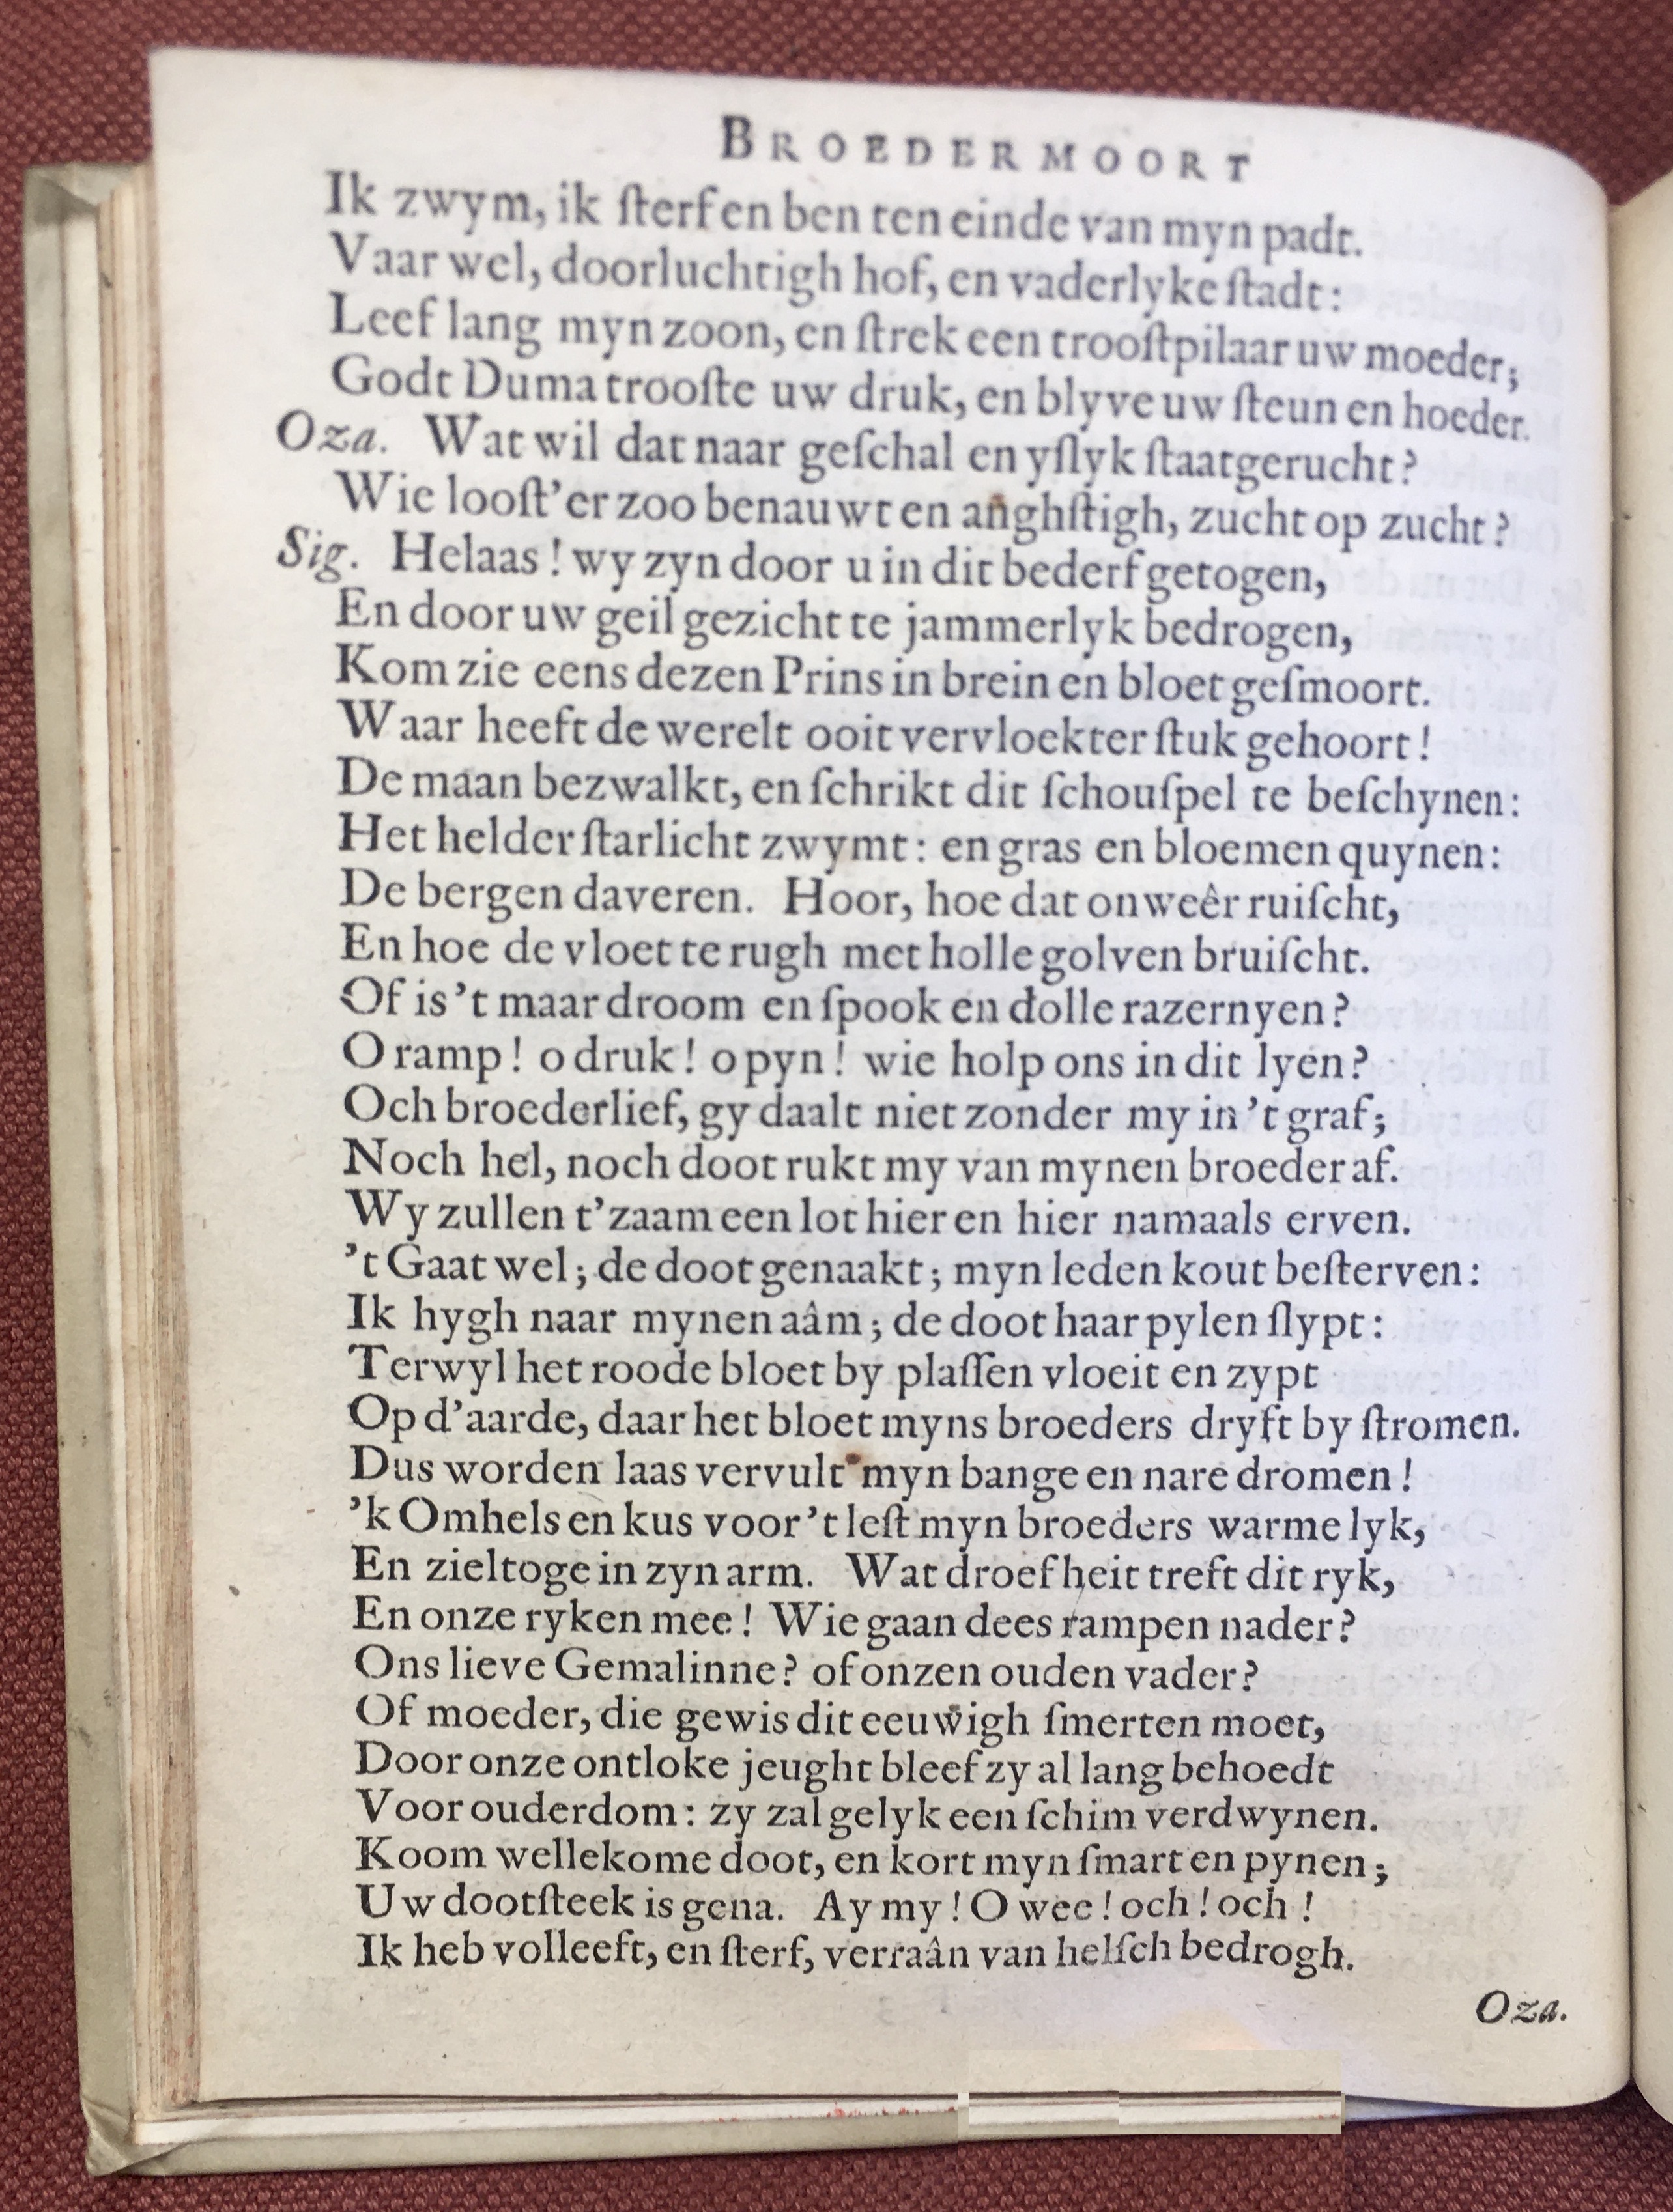 BROEDERMOORT
Ik zwym, ik ſterf en ben ten einde van myn padt.
Vaar wel, doorluchtigh hof, en vaderlyke ſtadt:
Leef lang myn zoon, en ſtrek een trooſtpilaar uw moeder;
Godt Duma trooſte uw druk, en blyve uw ſteun en hoeder.
Oza. Wat wil dat naar geſchal en yſlyk ſtaatgerucht?
Wie looſt'er zoo benauwt en anghſtigh, zucht op zucht?
Sig. Helaas! wy zyn door u in dit bederf getogen,
En door uw geil gezicht te jammerlyk bedrogen,
Kom zie eens dezen Prins in brein en bloet geſmoort.
Waar heeft de werelt ooit vervloekter ſtuk gehoort!
De maan bezwalkt, en ſchrikt dit ſchouſpel te beſchynen:
Het helder ſtarlicht zwymt: en gras en bloemen quynen:
De bergen daveren. Hoor, hoe dat onweêr ruiſcht,
En hoe de vloet te rugh met holle golven bruiſcht.
Of is 't maar droom en ſpook en dolle razernyen?
O ramp! o druk! o pyn! wie holp ons in dit lyen?
Och broederlief, gy daalt niet zonder my in 't graf;
Noch hel, noch doot rukt my van mynen broeder af.
Wy zullen t'zaam een lot hier en hier namaals erven.
't Gaat wel; de doot genaakt; myn leden kout beſterven:
Ik hygh naar mynen aâm; de doot haar pylen ſlypt:
Terwyl het roode bloet by plaſſen vloeit en zypt
Op d'aarde, daar het bloet myns broeders dryft by ſtromen.
Dus worden laas vervult myn bange en nare dromen!
'k Omhels en kus voor 't leſt myn broeders warme lyk,
En zieltoge in zyn arm. Wat droefheit treft dit ryk,
En onze ryken mee! Wie gaan dees rampen nader?
Ons lieve Gemalinne? of onzen ouden vader?
Of moeder, die gewis dit eeuwigh ſmerten moet,
Door onze ontloke jeught bleef zy al lang behoedt
Voor ouderdom: zy zal gelyk een ſchim verdwynen.
Koom wellekome doot, en kort myn ſmart en pynen;
Uw dootſteek is gena. Ay my! O wee! och! och!
Ik heb volleeft, en ſterf, verraân van helſch bedrogh.
Oza.